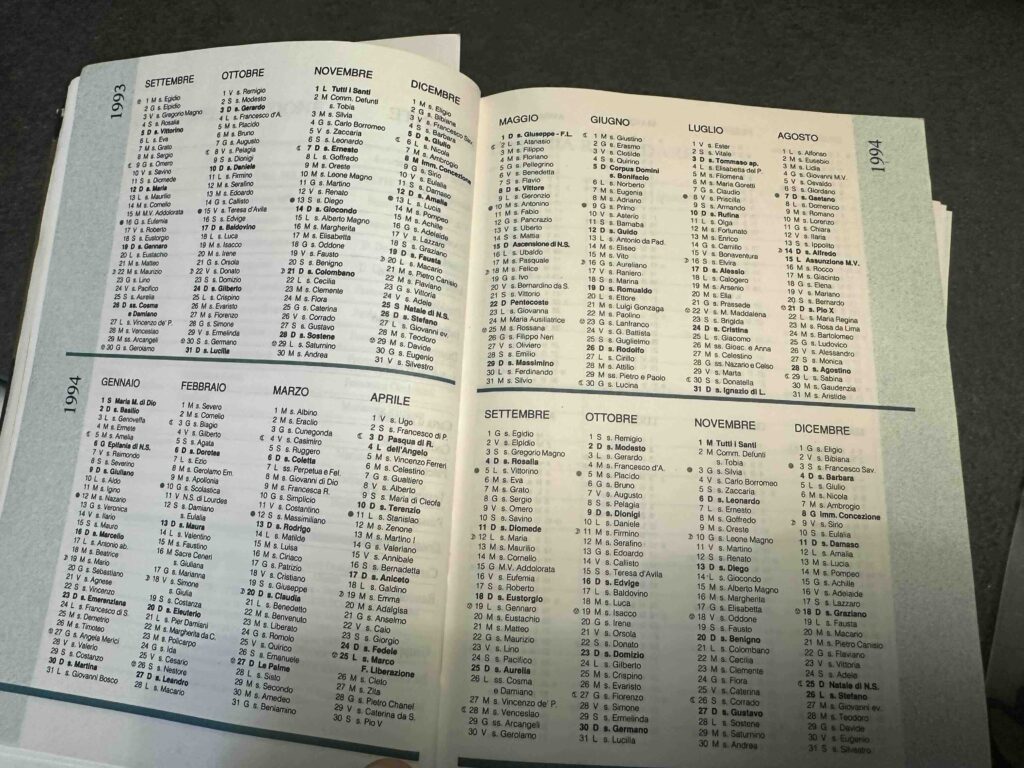 1993
SETTEMBRE
1 M s. Egidio
2 G s. Elpidio
3 V s. Gregorio Magno
4 S s. Rosalia
5 D s. Vittorino
6 L s. Eva
7 M s. Grato
8 M s. Sergio
9 G s. Omero
10 V s. Savino
11 S s. Diomede
12 D s. Maria
13 L s. Maurilio
14 M s. Cornelio
15 M M.V. Addolorata
16 G s. Eufemia
17 V s. Roberto
18 S s. Eustorgio
19 D s. Gennaro
20 L s. Eustachio
21 M s. Matteo
22 M s. Maurizio
23 G s. Lino
24 V s. Pacifico
25 S s. Aurelia
26 D ss. Cosma
e Damiano
27 L s. Vincenzo de' P.
28 M s. Venceslao
29 M ss. Arcangeli
30 G s. Gerolamo
OTTOBRE
1 V s. Remigio
2 S s. Modesto
3 D s. Gerardo
4 L s. Francesco d'A.
5 M s. Placido
6 M s. Bruno
7 G s. Augusto
8 V s. Pelagia
9 S s. Dionigi
10 D s. Daniele
11 L s. Firmino
12 M s. Serafino
13 M s. Edoardo
14 G s. Callisto
15 V s. Teresa d'Avila
16 S s. Edvige
17 D s. Baldovino
18 L s. Luca
19 M s. Isacco
20 M s. Irene
21 G s. Orsola
22 V s. Donato
23 S s. Domizio
24 D s. Gilberto
25 L s. Crispino
26 M s. Evaristo
27 M s. Fiorenzo
28 G s. Simone
29 V s. Ermelinda
30 S s. Germano
31 D s. Lucilla
NOVEMBRE
1 L Tutti i Santi
2 M Comm. Defunti
s. Tobia
3 M s. Silvia
4 G s. Carlo Borromeo
5 V s. Zaccaria
6 S s. Leonardo
7 D s. Ernesto
8 L s. Goffredo
9 M s. Oreste
10 M s. Leone Magno
11 G s. Martino
12 V s. Renato
13 S s. Diego
14 D s. Giocondo
15 L s. Alberto Magno
16 M s. Margherita
17 M s. Elisabetta
18 G s. Oddone
19 V s. Fausto
20 S s. Benigno
21 D s. Colombano
22 L s. Cecilia
23 M s. Clemente
24 M s. Flora
25 G s. Caterina
26 V s. Corrado
27 S s. Gustavo
28 D s. Sostene
29 L s. Saturnino
30 M s. Andrea
DICEMBRE
1 M s. Eligio
2 G s. Bibiana
3 V s. Francesco Sav.
4 S s. Barbara
5 D s. Giulio
6 L s. Nicola
7 M s. Ambrogio
8 M Imm. Concezione
9 G s. Sirio
10 V s. Eulalia
11 S s. Damaso
12 D s. Amalia
13 L s. Lucia
14 M s. Pompeo
15 M s. Achille
16 G s. Adelaide
17 V s. Lazzaro
18 S s. Graziano
19 D s. Fausta
20 L s. Macario
21 M s. Pietro Canisio
22 M s. Flaviano
23 G s. Vittoria
24 V s. Adele
25 S Natale di N.S.
26 D s. Stefano
27 L s. Giovanni ev.
28 M s. Teodoro
29 M s. Davide
30 G s. Eugenio
31 V s. Silvestro
1994
GENNAIO
1 S Maria M. di Dio
2 D s. Basilio
3 L s. Genoveffa
4 M s. Ermete
5 M s. Amelia
6 G Epifania di N.S.
7 V s. Raimondo
8 S s. Severino
9 D s. Giuliano
10 L s. Aldo
11 M s. Igino
12 M s. Nazario
13 G s. Veronica
14 V s. Ilario
15 S s. Mauro
16 D s. Marcello
17 L s. Antonio ab.
18 M s. Beatrice
19 M s. Mario
20 G s. Sebastiano
21 V s. Agnese
22 S s. Vincenzo
23 D s. Emerenziana
24 L s. Francesco di S.
25 M s. Demetrio
26 M s. Timoteo
27 G s. Angela Merici
28 V s. Valerio
29 S s. Costanzo
30 D s. Martina
31 L s. Giovanni Bosco
FEBBRAIO
1 M s. Severo
2 M s. Cornelio
3 G s. Biagio
4 V s. Gilberto
5 S s. Agata
6 D s. Dorotea
7 L s. Ezio
8 M s. Gerolamo Em.
9 M s. Apollonia
10 G s. Scolastica
11 V N.S. di Lourdes
12 S s. Damiano
s. Eulalia
13 D s. Maura
14 L s. Valentino
15 M s. Faustino
16 M Sacre Ceneri
s. Giuliana
17 G s. Marianna
18 V s. Simone
s. Giulia
19 S s. Costanza
20 D s. Eleuterio
21 L s. Pier Damiani
22 M s. Margherita da C.
23 M s. Policarpo
24 G s. Ida
25 V s. Cesario
26 S s. Nestore
27 D s. Leandro
28 L s. Macario
MARZO
1 M s. Albino
2 M s. Eraclio
3 G s. Cunegonda
4 V s. Casimiro
5 S s. Ruggero
6 D s. Coletta
7 L ss. Perpetua e Fel.
8 M s. Giovanni di Dio
9 M s. Francesca R.
10 G s. Simplicio
11 V s. Costantino
12 S s. Massimiliano
13 D s. Rodrigo
14 L s. Matilde
15 M s. Luisa
16 M s. Ciriaco
17 G s. Patrizio
18 V s. Cristiano
19 S s. Giuseppe
20 D s. Claudia
21 L s. Benedetto
22 M s. Benvenuto
23 M s. Liberato
24 G s. Romolo
25 V s. Quirico
26 S s. Emanuele
27 D Le Palme
28 L s. Sisto
29 M s. Secondo
30 M s. Amedeo
31 G s. Beniamino
APRILE
1 V s. Ugo
2 S s. Francesco di P.
3 D Pasqua di R.
4 L dell'Angelo
5 M s. Vincenzo Ferreri
6 M s. Celestino
7 G s. Gualtiero
8 V s. Alberto
9 S s. Maria di Cleofa
10 D s. Terenzio
11 L s. Stanislao
12 M s. Zenone
13 M s. Martino I
14 G s. Valeriano
15 V s. Annibale
16 S s. Bernadetta
17 D s. Aniceto
18 L s. Galdino
19 M s. Emma
20 M s. Adalgisa
21 G s. Anselmo
22 V s. Caio
23 S s. Giorgio
24 D s. Fedele
25 L s. Marco
F. Liberazione
26 M s. Cleto
27 M s. Zita
28 G s. Pietro Chanel
29 V s. Caterina da S.
30 S s. Pio V
1994
MAGGIO
1 D s. Giuseppe - F.L.
2 L s. Atanasio
3 M s. Filippo
4 M s. Floriano
5 G s. Pellegrino
6 V s. Benedetta
7 S s. Flavio
8 D s. Vittore
9 L s. Geronzio
10 M s. Antonino
11 M s. Fabio
12 G s. Pancrazio
13 V s. Uberto
14 S s. Mattia
15 D Ascensione di N.S.
16 L s. Ubaldo
17 M s. Pasquale
18 M s. Felice
19 G s. Ivo
20 V s. Bernardino da S.
21 S s. Vittorio
22 D Pentecoste
23 L s. Giovanna
24 M Maria Ausiliatrice
25 M s. Rossana
26 G s. Filippo Neri
27 V s. Oliviero
28 S s. Emilio
29 D s. Massimino
30 L s. Ferdinando
31 M s. Silvio
GIUGNO
1 M s. Giustino
2 G s. Erasmo
3 V s. Clotilde
4 S s. Quirino
5 D Corpus Domini
s. Bonifacio
6 L s. Norberto
7 M s. Eugenia
8 M s. Adriano
9 G s. Primo
10 V s. Asterio
11 S s. Barnaba
12 D s. Guido
13 L s. Antonio da Pad.
14 M s. Eliseo
15 M s. Vito
16 G s. Aureliano
17 V s. Raniero
18 S s. Marina
19 D s. Romualdo
20 L s. Ettore
21 M s. Luigi Gonzaga
22 M s. Paolino
23 G s. Lanfranco
24 V s. G. Battista
25 S s. Guglielmo
26 D s. Rodolfo
27 L s. Cirillo
28 M s. Attilio
29 M ss. Pietro e Paolo
30 G s. Lucina
LUGLIO
1 V s. Ester
2 S s. Vitale
3 D s. Tommaso ap.
4 L s. Elisabetta del P.
5 M s. Filomena
6 M s. Maria Goretti
7 G s. Claudio
8 V s. Priscilla
9 S s. Armando
10 D s. Rufina
11 L s. Olga
12 M s. Fortunato
13 M s. Enrico
14 G s. Camillo
15 V s. Bonaventura
16 S s. Elvira
17 D s. Alessio
18 L s. Calogero
19 M s. Arsenio
20 M s. Elia
21 G s. Prassede
22 V s. M. Maddalena
23 S s. Brigida
24 D s. Cristina
25 L s. Giacomo
26 M ss. Gioac. e Anna
27 M s. Celestino
28 G ss. Nazario e Celso
29 V s. Marta
30 S s. Donatella
31 D s. Ignazio di L.
AGOSTO
1 L s. Alfonso
2 M s. Eusebio
3 M s. Lidia
4 G s. Giovanni M.V.
5 V s. Osvaldo
6 S s. Giordano
7 D s. Gaetano
8 L s. Domenico
9 M s. Romano
10 M s. Lorenzo
11 G s. Chiara
12 V s. Ilaria
13 S s. Ippolito
14 D s. Alfredo
15 L Assunzione M.V.
16 M s. Rocco
17 M s. Giacinto
18 G s. Elena
19 V s. Mariano
20 S s. Bernardo
21 D s. Pio X
22 L s. Maria Regina
23 M s. Rosa da Lima
24 M s. Bartolomeo
25 G s. Ludovico
26 V s. Alessandro
27 S s. Monica
28 D s. Agostino
29 L s. Sabina
30 M s. Gaudenzia
31 M s. Aristide
SETTEMBRE
1 G s. Egidio
2 V s. Elpidio
3 S s. Gregorio Magno
4 D s. Rosalia
5 L s. Vittorino
6 M s. Eva
7 M s. Grato
8 G s. Sergio
9 V s. Omero
10 S s. Savino
11 D s. Diomede
12 L s. Maria
13 M s. Maurilio
14 M s. Cornelio
15 G M.V. Addolorata
16 V s. Eufemia
17 S s. Roberto
18 D s. Eustorgio
19 L s. Gennaro
20 M s. Eustachio
21 M s. Matteo
22 G s. Maurizio
23 V s. Lino
24 S s. Pacifico
25 D s. Aurelia
26 L ss. Cosma
e Damiano
27 M s. Vincenzo de' P.
28 M s. Venceslao
29 G ss. Arcangeli
30 V s. Gerolamo
OTTOBRE
1 S s. Remigio
2 D s. Modesto
3 L s. Gerardo
4 M s. Francesco d'A.
5 M s. Placido
6 G s. Bruno
7 V s. Augusto
8 S s. Pelagia
9 D s. Dionigi
10 L s. Daniele
11 M s. Firmino
12 M s. Serafino
13 G s. Edoardo
14 V s. Callisto
15 S s. Teresa d'Avila
16 D s. Edvige
17 L s. Baldovino
18 M s. Luca
19 M s. Isacco
20 G s. Irene
21 V s. Orsola
22 S s. Donato
23 D s. Domizio
24 L s. Gilberto
25 M s. Crispino
26 M s. Evaristo
27 G s. Fiorenzo
28 V s. Simone
29 S s. Ermelinda
30 D s. Germano
31 L s. Lucilla
NOVEMBRE
1 M Tutti i Santi
2 M Comm. Defunti
s. Tobia
3 G s. Silvia
4 V s. Carlo Borromeo
5 S s. Zaccaria
6 D s. Leonardo
7 L s. Ernesto
8 M s. Goffredo
9 M s. Oreste
10 G s. Leone Magno
11 V s. Martino
12 S s. Renato
13 D s. Diego
14 L s. Giocondo
15 M s. Alberto Magno
16 M s. Margherita
17 G s. Elisabetta
18 V s. Oddone
19 S s. Fausto
20 D s. Benigno
21 L s. Colombano
22 M s. Cecilia
23 M s. Clemente
24 G s. Flora
25 V s. Caterina
26 S s. Corrado
27 D s. Gustavo
28 L s. Sostene
29 M s. Saturnino
30 M s. Andrea
DICEMBRE
1 G s. Eligio
2 V s. Bibiana
3 S s. Francesco Sav.
4 D s. Barbara
5 L s. Giulio
6 M s. Nicola
7 M s. Ambrogio
8 G Imm. Concezione
9 V s. Sirio
10 S s. Eulalia
11 D s. Damaso
12 L s. Amalia
13 M s. Lucia
14 M s. Pompeo
15 G s. Achille
16 V s. Adelaide
17 S s. Lazzaro
18 D s. Graziano
19 L s. Fausta
20 M s. Macario
21 M s. Pietro Canisio
22 G s. Flaviano
23 V s. Vittoria
24 S s. Adele
25 D Natale di N.S.
26 L s. Stefano
27 M s. Giovanni ev.
28 M s. Teodoro
29 G s. Davide
30 V s. Eugenio
31 S s. Silvestro